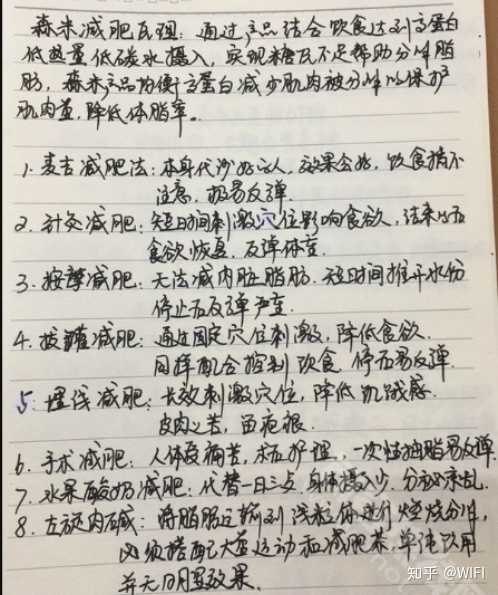 森米减肥原理：通过产品结合饮食达到高蛋白
低热量低碳水摄入，实现糖原不足帮助分解脂
肪，森米产品均衡高蛋白减少肌肉被分解以保护
肌肉量，降低体脂率。
1. 麦吉减肥法：本身代谢好的人，效果会好，饮食稍不
注意，极易反弹
2. 针灸减肥：短时间刺激穴位影响食欲，结束以后
食欲恢复，反弹体重
3. 按摩减肥：无法减内脏脂肪，短时间推开水份
停止后反弹严重
4. 拔罐减肥：通过固定穴位刺激，降低食欲.
同样配合控制饮食 停后易反弹
5. 埋线减肥：长效刺激穴位，降低饥饿感
皮肉之苦，留疤痕.
6. 手术减肥：人体受痛苦，术后护理，一次性抽脂易反弹
7. 水果酸奶减肥：代替一日三点，身体摄入少，分泌紊乱.
8. 左旋肉碱：将脂肪运输到线粒体进行燃烧分解，
必须搭配大量运动和减肥茶，单纯饮用
并无明显效果.
知乎 @WIFI